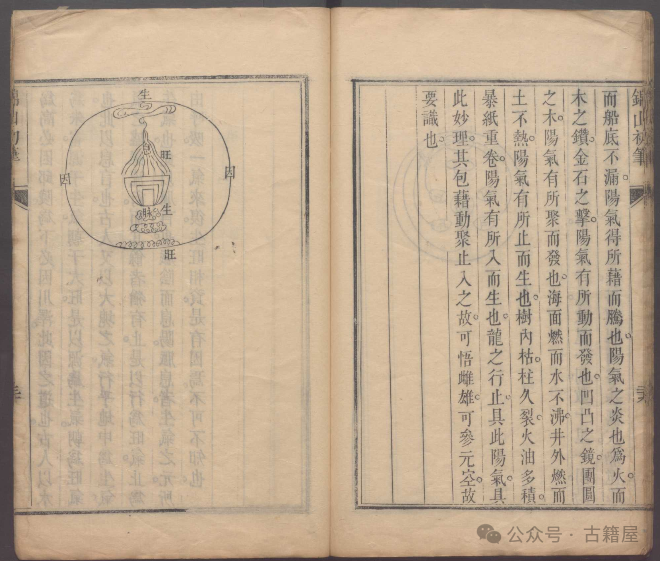 而船底不漏陽氣得所藉而騰也陽氣之炎也爲火而
木之鑽金石之擊陽氣有所動而發也凹凸之鏡團圓
之木陽氣有所聚而發也海面燃而水不沸井外燃而
土不熱陽氣有所止而生也樹內枯柱久裂火油多積
暴紙重卷陽氣有所入而生也龍之行止具此陽氣具
此妙理其包藉動聚止入之故可悟雌雄可參元空故
要識也
生
旺
囚
囚
生
旺
公众号·古籍屋